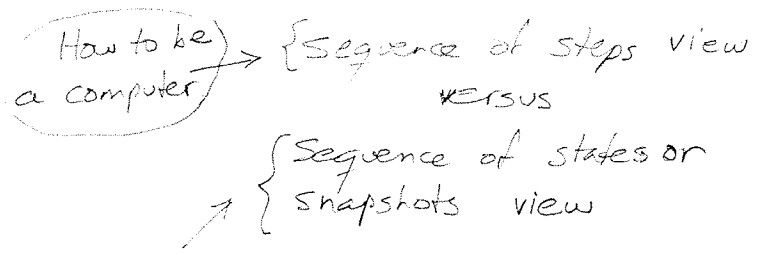 How to be
a computer
Sequence of steps view
versus
Sequence of states or
snapshots view